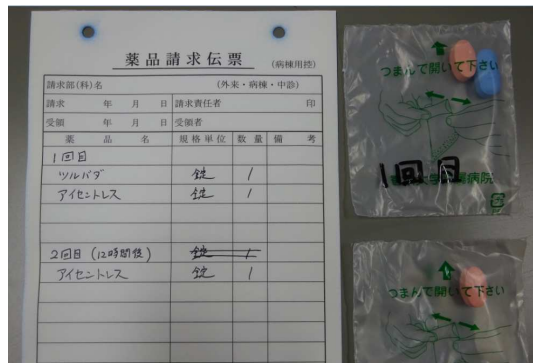 薬品請求伝票 (病棟用控)
請求部(科)名 (外来・病棟・中診)
請求 年 月 日 請求責任者 印
受領 年 月 日 受領者
薬品名 規格単位 数量 備考
1回目
ツルバダ 錠 1
アイセントレス 錠 1
2回目 (12時間後) 錠 1
アイセントレス 錠 1
つまんで開いて下さい
1回目
病院
つまんで開いて下さい